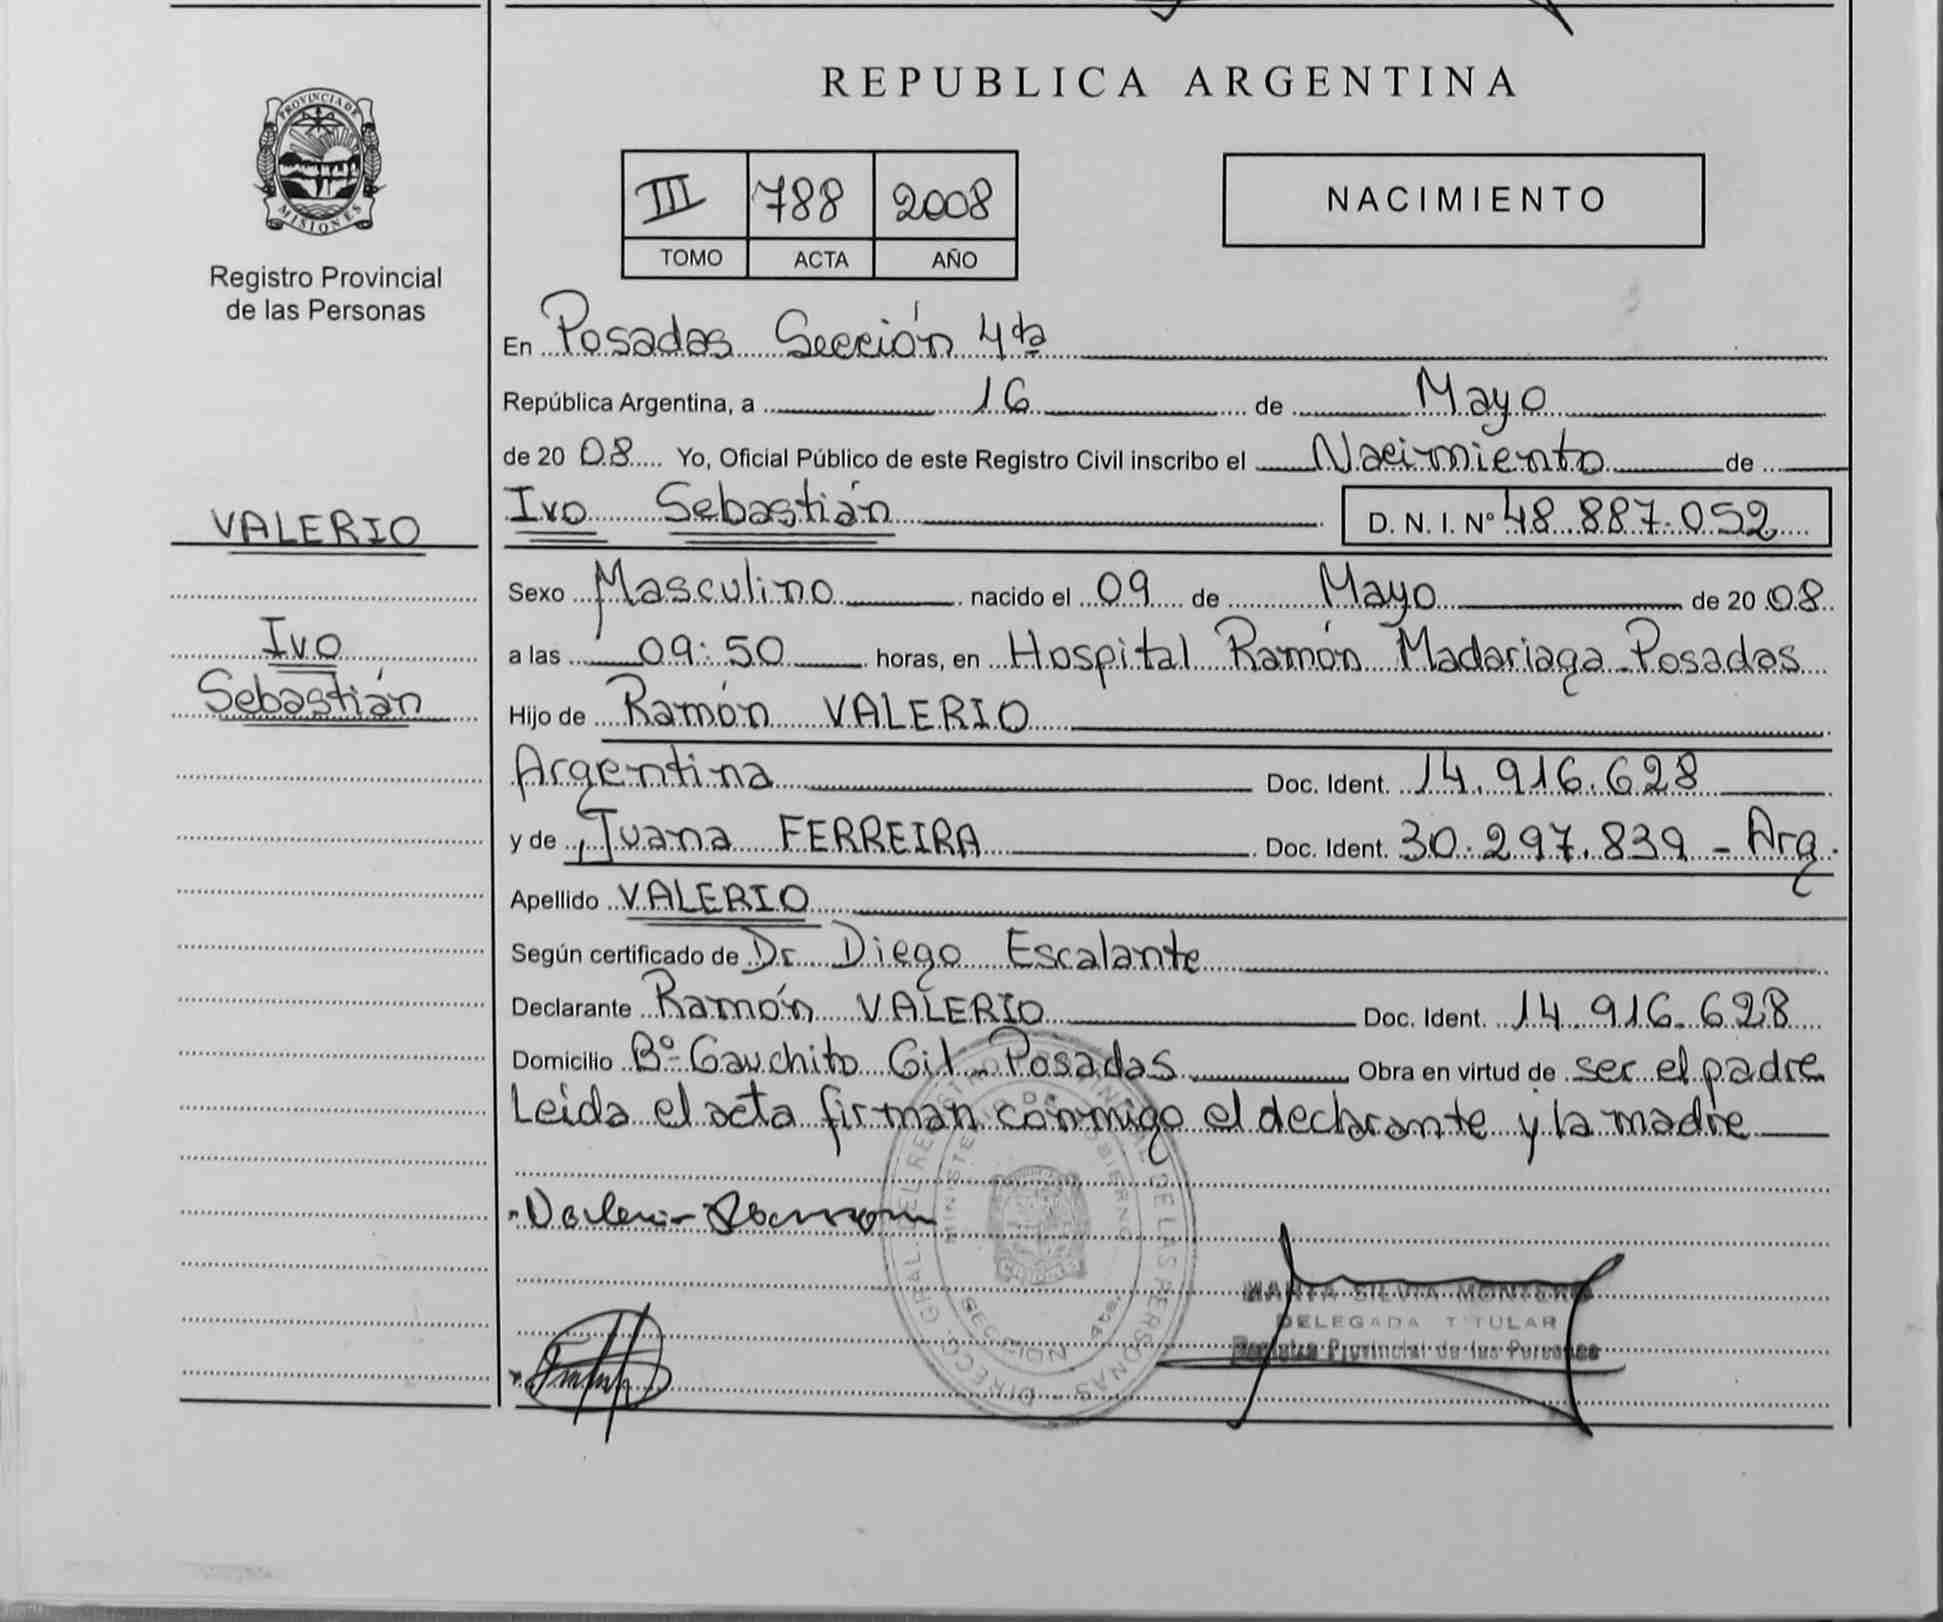 REPUBLICA ARGENTINA
PROVINCIA DE
MISIONES
Registro Provincial
de las Personas
III 788 2008
TOMO ACTA AÑO
NACIMIENTO
En Posadas Sección 4ta
República Argentina, a 16 de Mayo
de 20 08 Yo, Oficial Público de este Registro Civil inscribo el Nacimiento de
VALERIO
Ivo Sebastián D. N. I. Nº 48.887.052
Sexo Masculino nacido el 09 de Mayo de 20 08
Ivo
a las 09:50 horas, en Hospital Ramón Madariaga Posadas
Sebastián
Hijo de Ramón VALERIO
Argentina Doc. Ident. 14.916.628
y de Juana FERREIRA Doc. Ident. 30.297.839 - Arg.
Apellido VALERIO
Según certificado de Dr. Diego Escalante
Declarante Ramón VALERIO Doc. Ident. 14.916.628
Domicilio Bº Gauchito Gil - Posadas Obra en virtud de ser el padre
Leída el acta firman conmigo el declarante y la madre
MARTA SILVIA MONTERO
DELEGADA TITULAR
Registro Provincial de las Personas